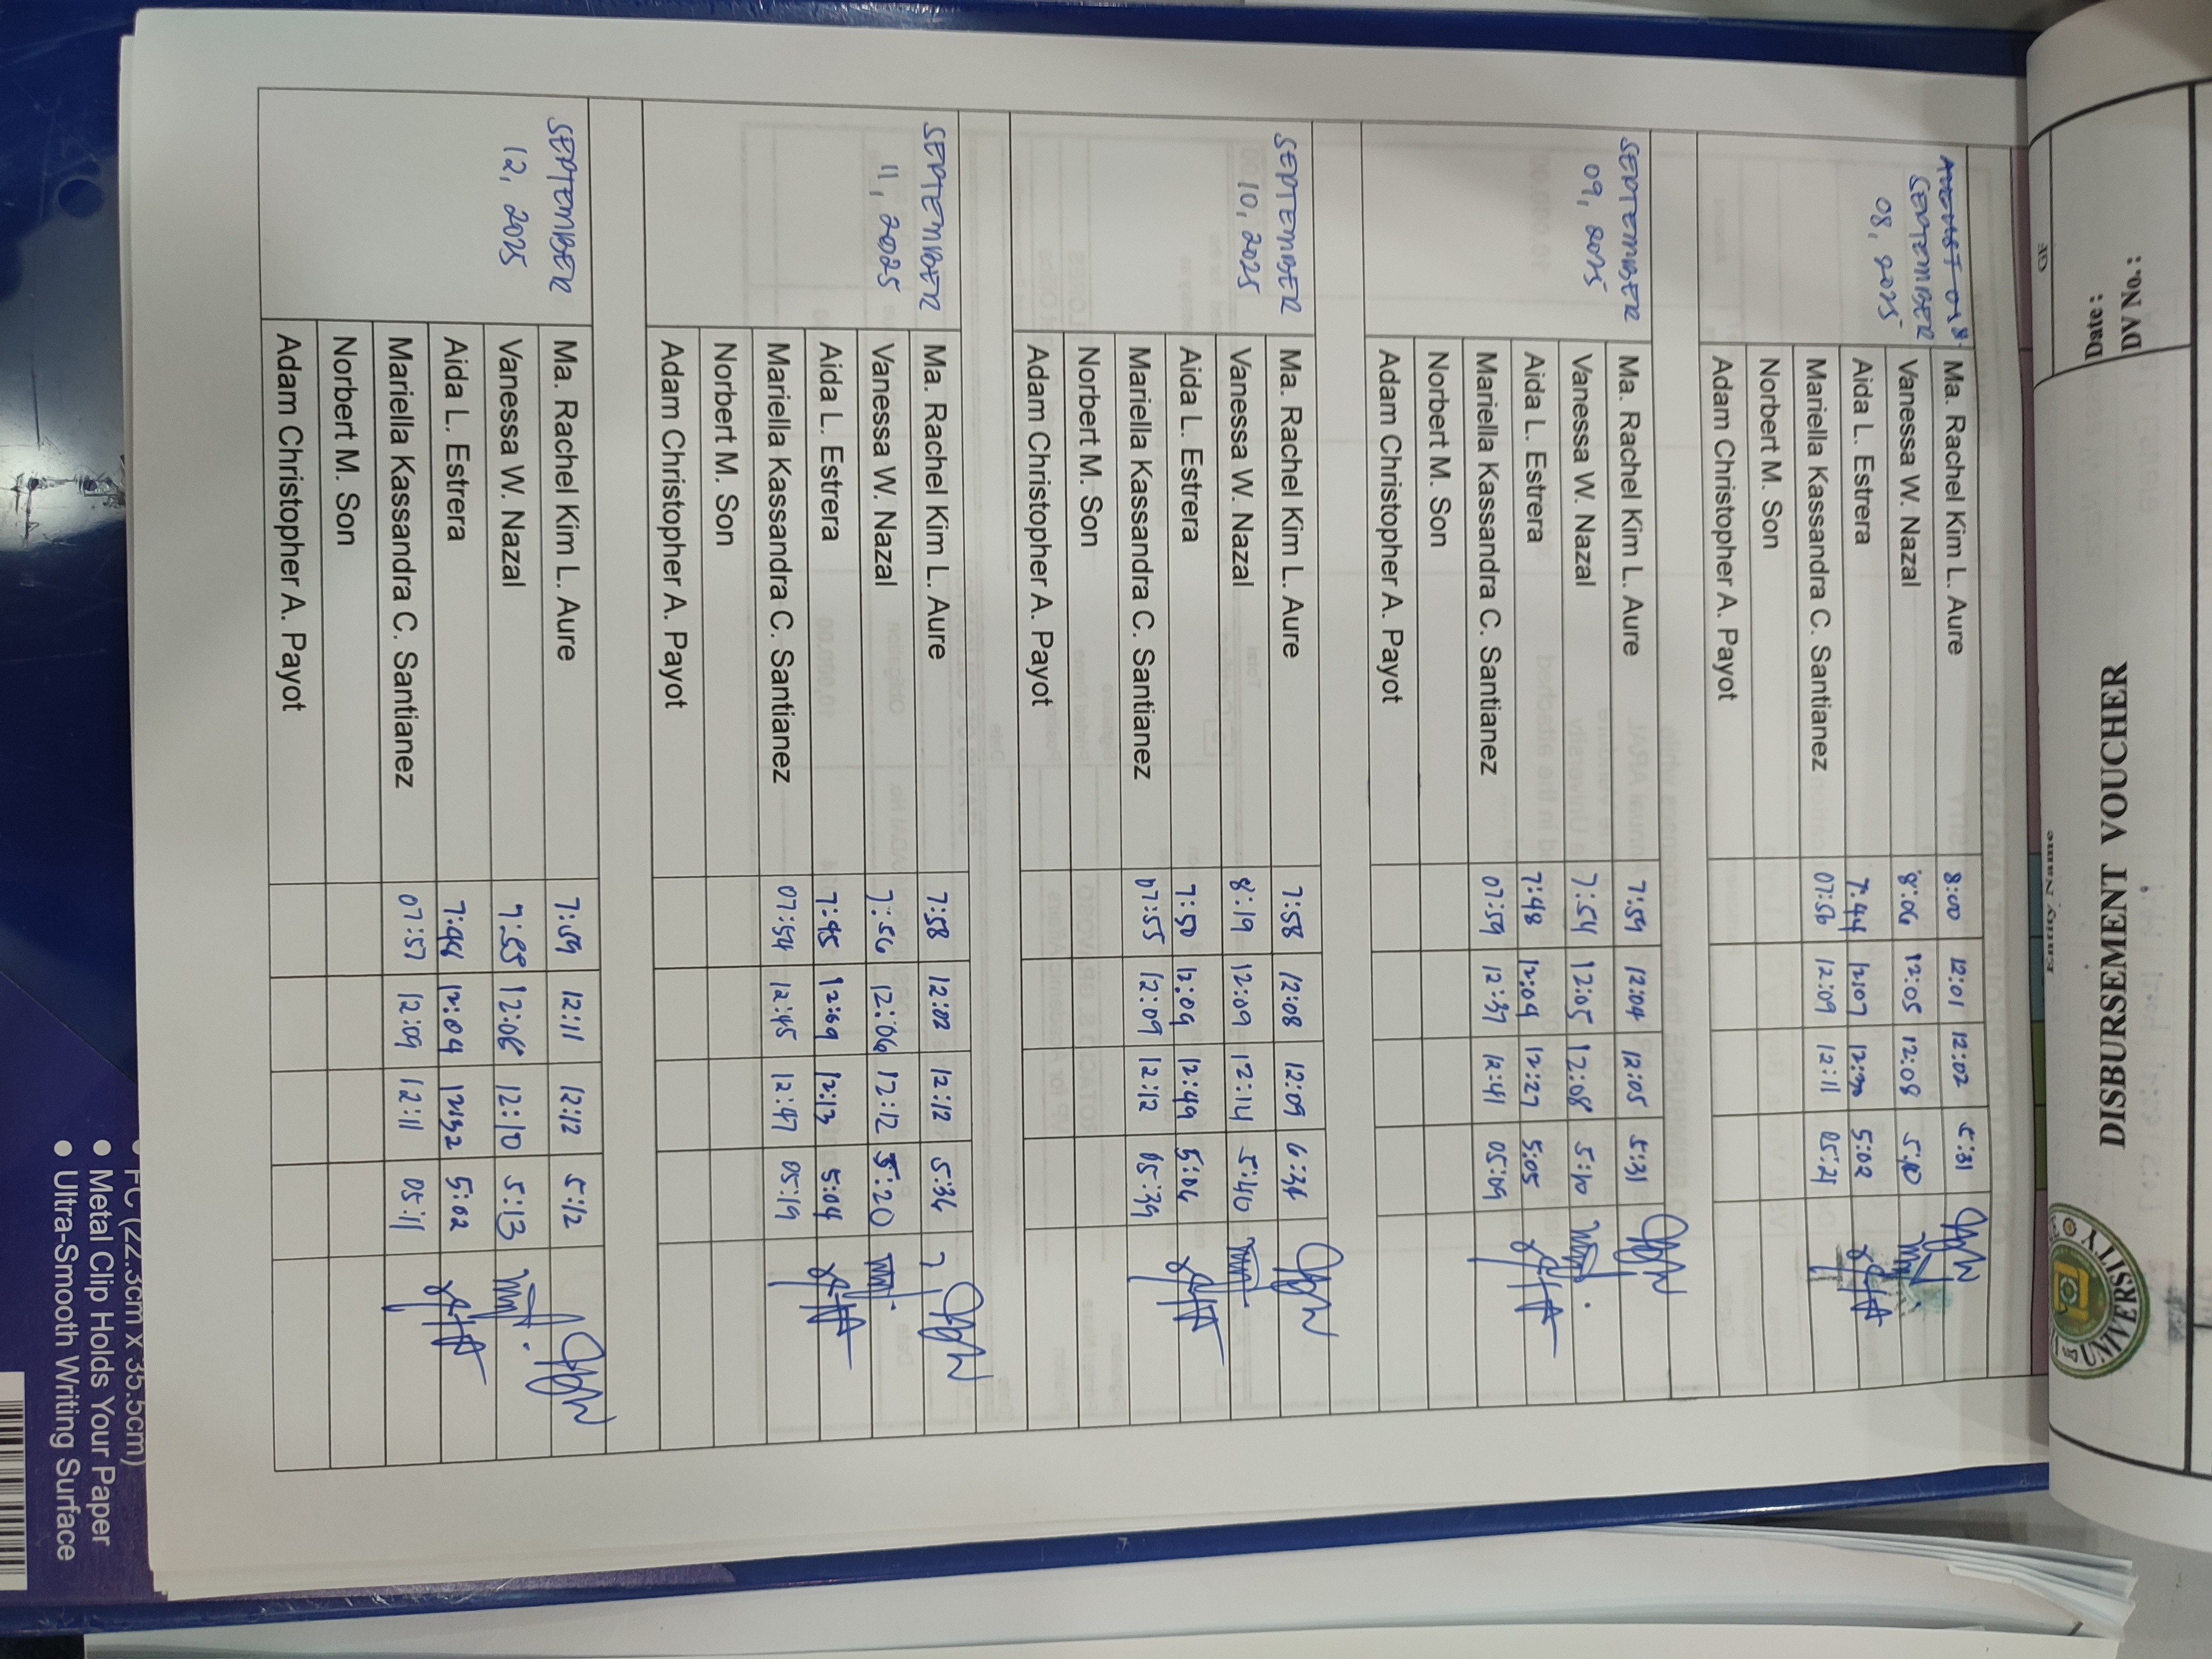 DV No. :
Date :
DISBURSEMENT VOUCHER
Entity Name
SEPTEMBER
08, 2025
Ma. Rachel Kim L. Aure 8:00 12:01 12:02 5:31
Vanessa W. Nazal 8:06 12:05 12:08 5:10
Aida L. Estrera 7:44 12:07 12:30 5:02
Mariella Kassandra C. Santianez 07:56 12:09 12:11 05:21
Norbert M. Son
Adam Christopher A. Payot
SEPTEMBER
09, 2025
Ma. Rachel Kim L. Aure 7:59 12:04 12:05 5:31
Vanessa W. Nazal 7:54 12:05 12:08 5:10
Aida L. Estrera 7:48 12:04 12:27 5:05
Mariella Kassandra C. Santianez 07:59 12:37 12:41 05:09
Norbert M. Son
Adam Christopher A. Payot
SEPTEMBER
10, 2025
Ma. Rachel Kim L. Aure 7:58 12:08 12:09
Vanessa W. Nazal 8:19 12:09 12:14 5:40
Aida L. Estrera 7:50 12:09 12:49 5:04
Mariella Kassandra C. Santianez 07:55 12:09 12:12 05:39
Norbert M. Son
Adam Christopher A. Payot
SEPTEMBER
11, 2025
Ma. Rachel Kim L. Aure 7:58 12:02 12:12 5:36
Vanessa W. Nazal 7:56 12:06 12:12 5:20
Aida L. Estrera 7:45 12:09 12:13 5:04
Mariella Kassandra C. Santianez 07:54 12:45 12:47 05:19
Norbert M. Son
Adam Christopher A. Payot
SEPTEMBER
12, 2025
Ma. Rachel Kim L. Aure 7:59 12:11 12:12 5:12
Vanessa W. Nazal 7:55 12:08 12:10 5:13
Aida L. Estrera 7:46 12:04 12:32 5:02
Mariella Kassandra C. Santianez 07:57 12:09 12:11 05:11
Norbert M. Son
Adam Christopher A. Payot
FC (22.3cm x 35.5cm)
● Metal Clip Holds Your Paper
● Ultra-Smooth Writing Surface